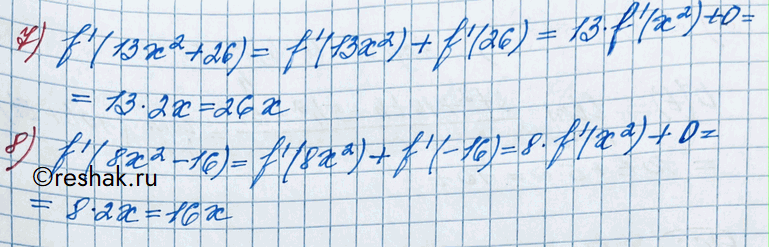 7) f'(13x²+26) = f'(13x²) + f'(26) = 13·f'(x²)+0=
= 13·2x=26x
8) f'(8x²-16)=f'(8x²)+f'(-16)=8·f'(x²)+0=
©reshak.ru
= 8·2x=16x